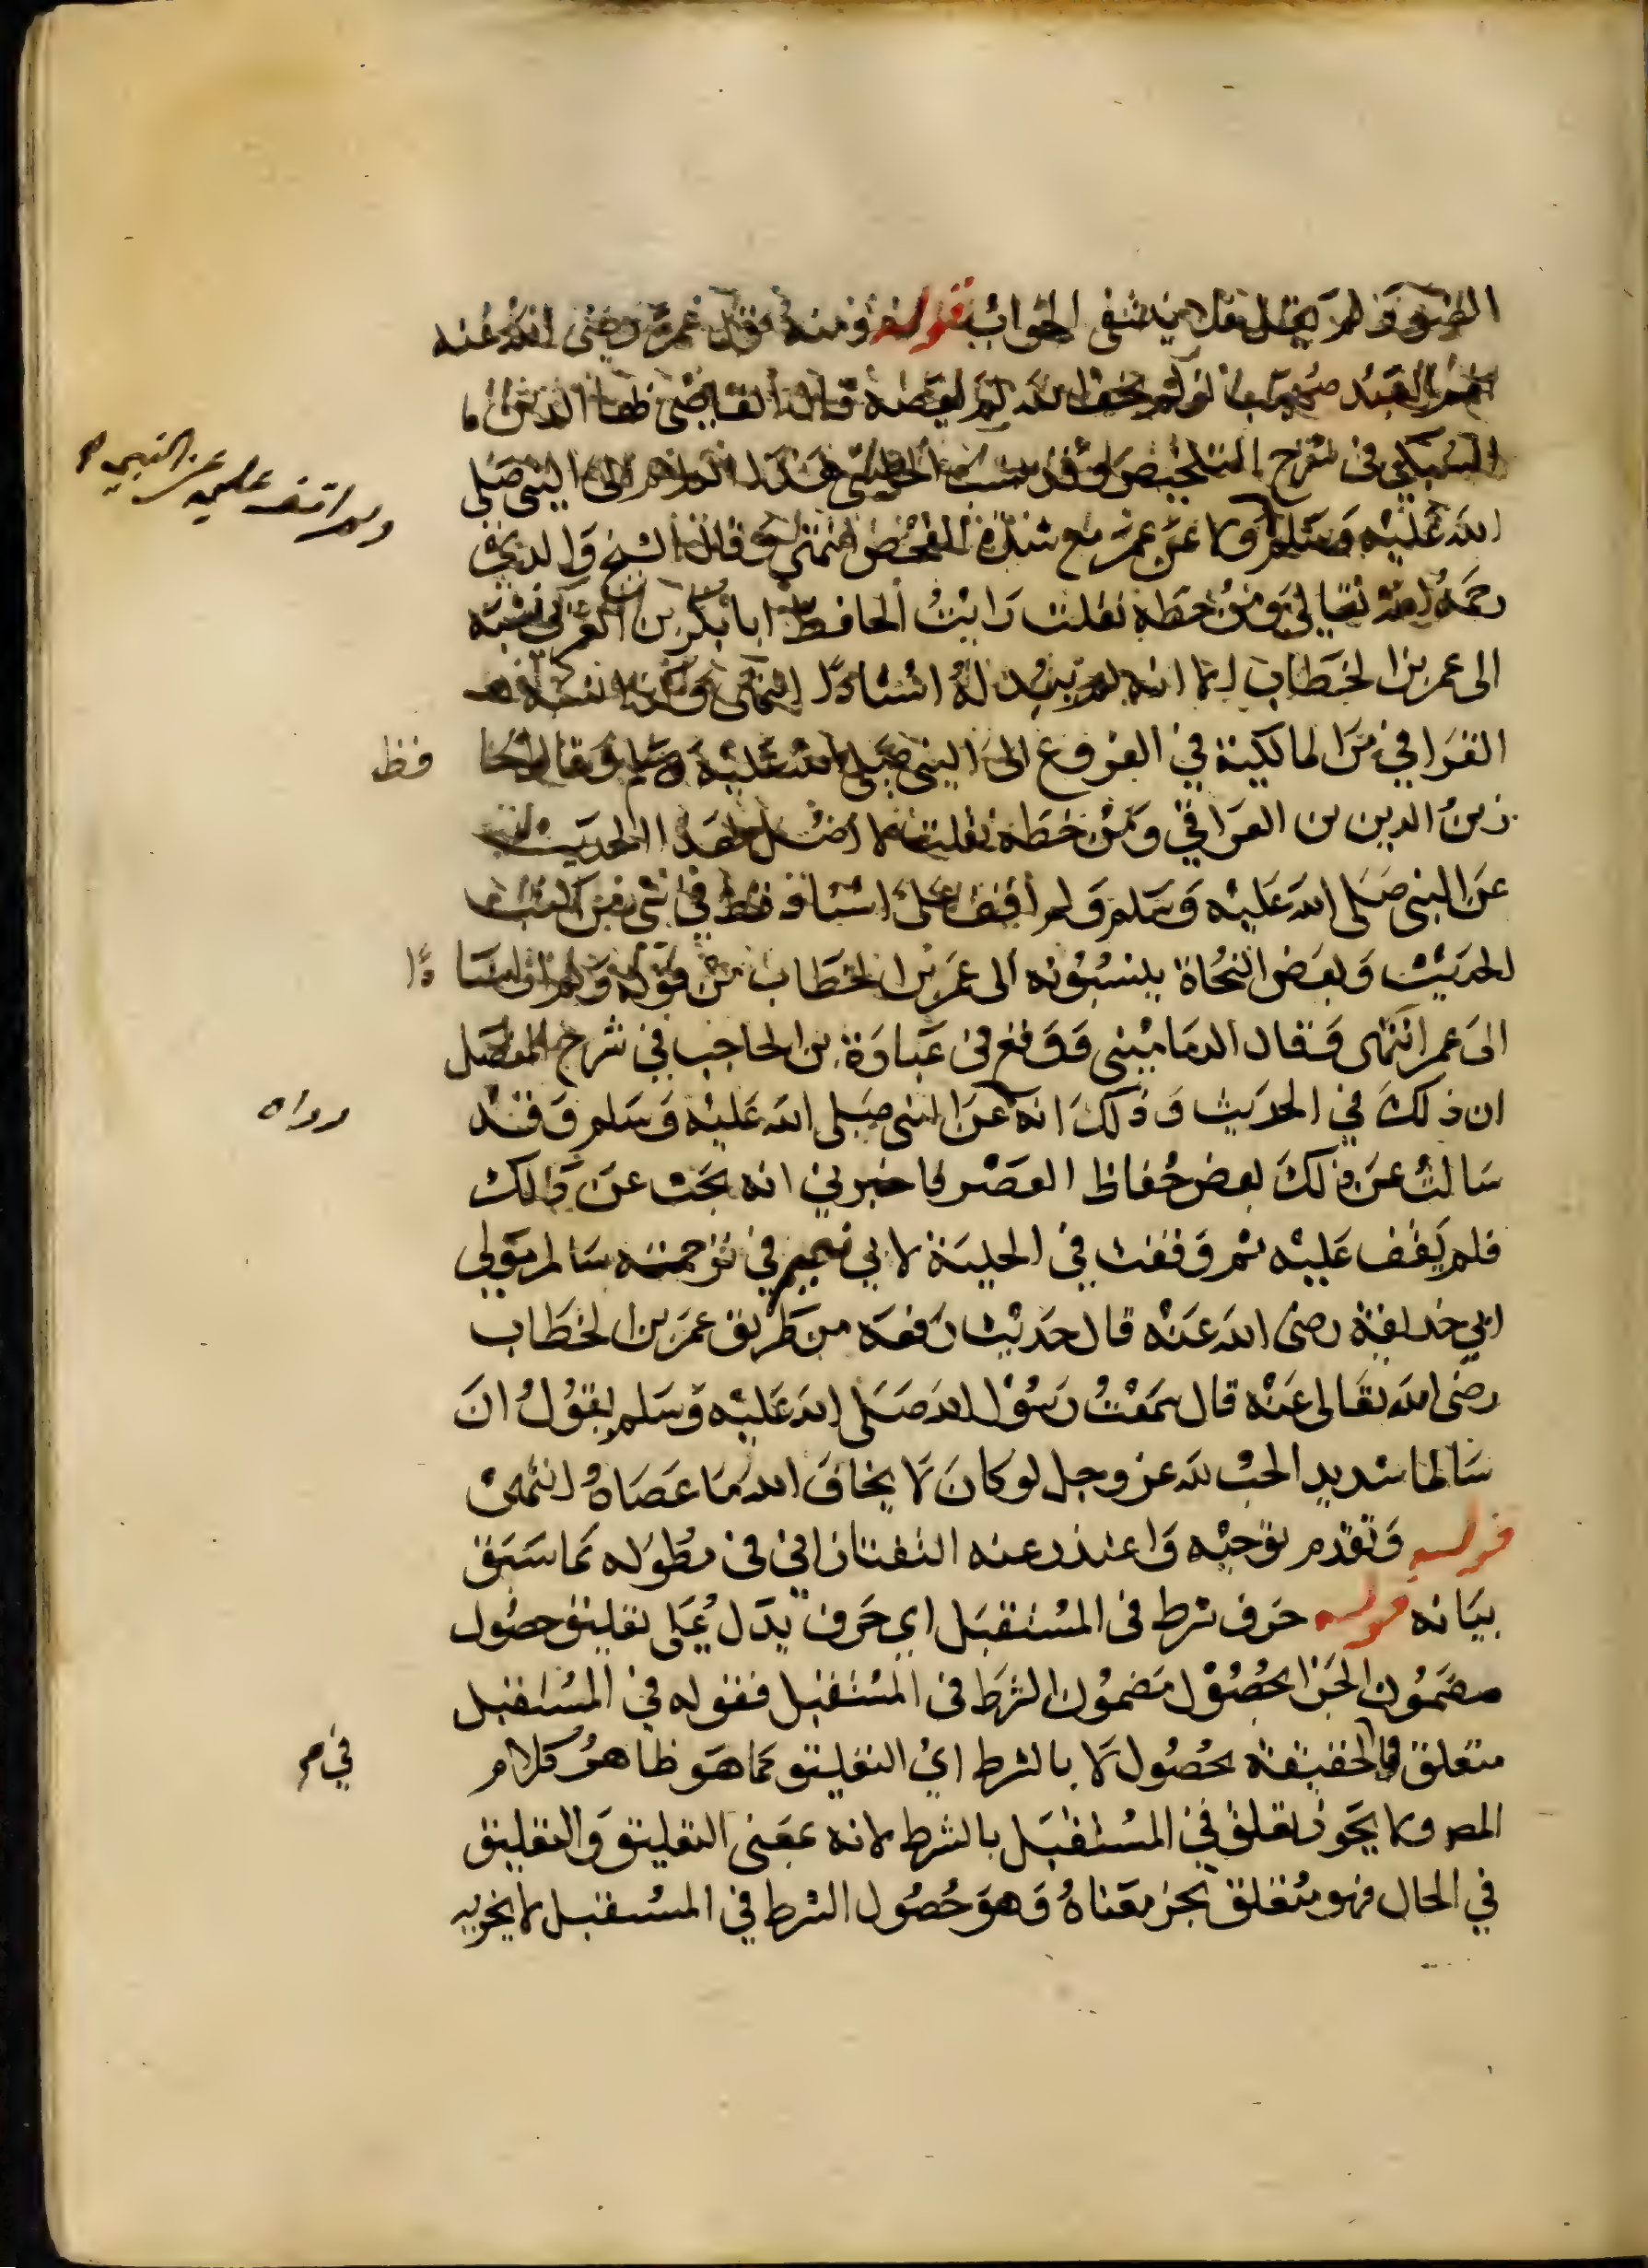 ولم يقل ينتفى الجواب قوله ومنه قول عمر رضى الله عنه
نعم العبد صهيب لو لم يخف الله لم يعصه قال القاضى بها الدين
السبكى فى شرح التلخيص وقد نسب هذا الى النبى صلى
الله عليه وسلم ولا عن عمر مع شدة الفحص انتهى وقال الشيخ والدى
ولم اقف عليه عن النبى
رحمه الله تعالى ومن خطه نقلت رايت الحافظ ابا بكر بن العربى نسبه
الى عمر بن الخطاب الا انه لم يبد له اسنادا انتهى
القرافى من المالكية في الفروع الى النبى صلى الله عليه وسلم وقال الحا فظ
زين الدين بن العراقي ومن خطه نقلت لا اصل لهذا الحديث
عن النبى صلى الله عليه وسلم ولم اقف على اسناد قط في شى من كتب
الحديث وبعض النحاة ينسبونه الى عمر بن الخطاب من قوله ولم ار اسنا دا
الى عمر انتهى وقال الدمامينى ووقع فى عبارة بن الحاجب في شرح المفصل
ان ذلك في الحديث وذلك انه عن النبى صلى الله عليه وسلم وقد
سالت عن ذلك بعض حفاظ العصر فاخبرني انه بحث عن ذلك
فلم يقف عليه ثم وقفت في الحلية لابي نعيم في ترجمة سالم مولى
ابي حذيفة رضى الله عنه قال حديث رفعه من طريق عمر بن الخطاب
رضى الله تعالى عنه قال سمعت رسول الله صلى الله عليه وسلم يقول ان
سالما شديد الحب لله عز وجل لو كان لا يخاف الله ما عصاه انتهى
قوله وتقدم توجيه واعتذر عنه التفتازانى فى مطوله كما سبق
بيانه قوله حرف شرط فى المستقبل اي حرف يدل على تعليق حصول
مضمون الجزا بحصول مضمون الشرط فى المستقبل فقوله في المستقبل
متعلق في الحقيقة بحصول لا بالشرط اي التعليق كما هو ظاهر كلام
في
المص ولا يجوز تعلق في المستقبل بالشرط لانه بمعنى التعليق والتعليق
في الحال فهو متعلق بجز معناه وهو حصول الشرط في المستقبل